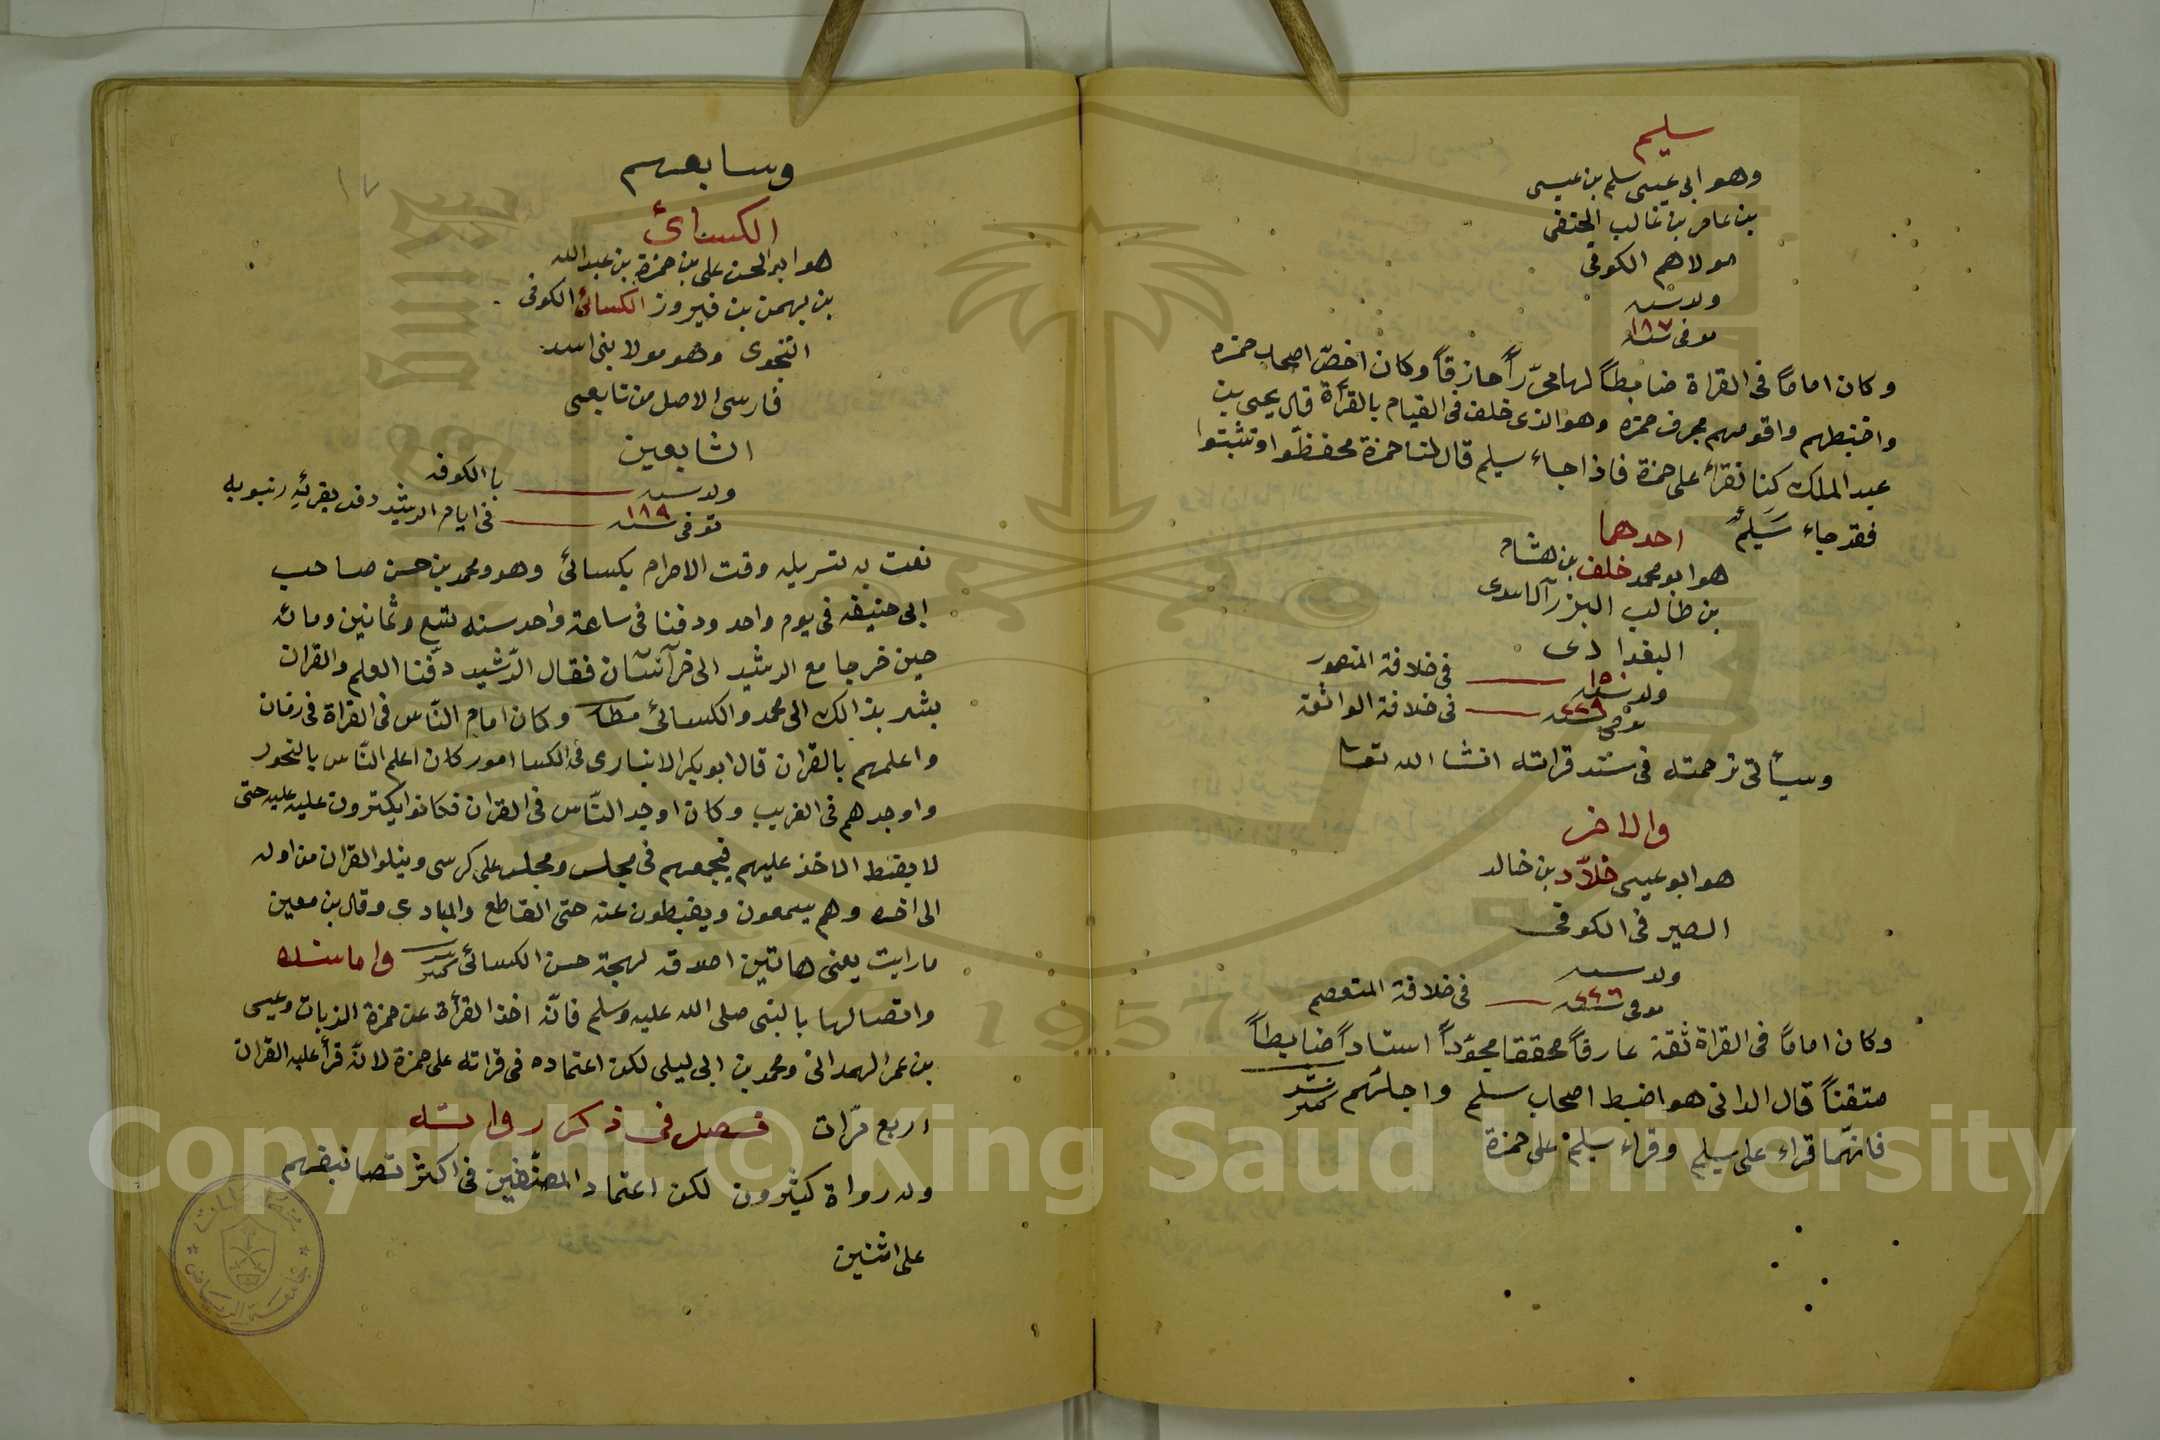 سليم
وهو ابى عيسى سليم بن عيسى
بن عامر بن غالب الحنفى
مولاهم الكوفى
ولد سنه
توفى سنه ١٨٧
وكان اماما فى القراة ضابطاً لها محرّراً حازقاً وكان اخصّ اصحاب حمزه
واضبطهم واقومهم بحرف حمزه وهو الذى خلف فى القيام بالقرأة قال يحيى بن
عبد الملك كنا نقرأ على حمزة فاذا جاء سليم قال لنا حمزة تحفظّوا وتثبتوا
فقد جاء سَليمٌ احدهما
هو ابو محمد خلف بن هشام
بن طالب البزرآ الاسدى
البغدادى
ولد سنه ١٥٠ فى خلافة المنصور
توفى سنه ٢٢٩ فى خلافة الواثقه
وسيأتى ترجمته فى سند قراته انشا الله تعا
والاخر
هو ابو عيسى خلاّد بن خالد
الصيرفى الكوفى
ولد سنه
توفى سنه ٢٢٦ فى خلافة المتعصم
وكان اماماً فى القراة ثقة عارفاً محققا مجوّداً استاداً ضابطاً
متقناً قال الدانى هو اضبط اصحاب سليم واجلهم نشر
فانهما قراء على سليم وقراء سليم على حمزة
١٧
وسابعهم
الكسائ
هو ابو الحسن على بن حمزة بن عبد الله
بن بهمن بن فيروز الكسائ الكوفى
النحوى وهو مولا بنى اسد
فارسى الاصل من تابعى
التابعين
ولد سنه با الكوفه
توفى سنه ١٨٩ فى ايام الرشيد دفن بقرئية رنبويه
نعت به تسربله وقت الاحرام بكسائ وهو ومحمد بن حسن صاحب
ابى حنيفه فى يوم واحد ودفنا فى ساعة واحد سنه تسع وثمانين ومائه
حين خرجا مع الرشيد الى خرآسان فقال الرّشيد دفّنا العلم والقران
بشير بذالك الى محمد والكسائ وكان امام النّاس فى القراة فى زمان
واعلمهم بالقران قال ابو بكر الانبارى فى الكسا امور كان اعلم النّاس بالنحور
واوجدهم فى الغريب وكان اوجد النّاس فى القران فكانوا يكثرون عليه عليه حتى
لا يضبط الاخذ عليهم فيجمعهم فى مجلس ومجلس على كرسى ويتلوا القران من اوله
الى اخره وهم يسمعون ويضبطون عنه حتى القاطع والمبادى وقال بن معين
ما رايت بعينى هاتين اصدق لهجة حسن الكسائ نشر واما سنده
واتصالها بالنبى صلى الله عليه وسلم فانّه اخذ القرأة عن حمزة الزيات وعيسى
بن عمر الهمدانى ومحمد بن ابى ليلى لكن اعتماده فى قراته على حمزة لانّه قرأ عليه القران
اربع مرّات فصل فى ذكر رواته
وله رواة كثيرون لكن اعتماد المصنّفين فى اكثر تصانيفهم
على اثنين
جامعة الرياض
1957
Copyright © King Saud University